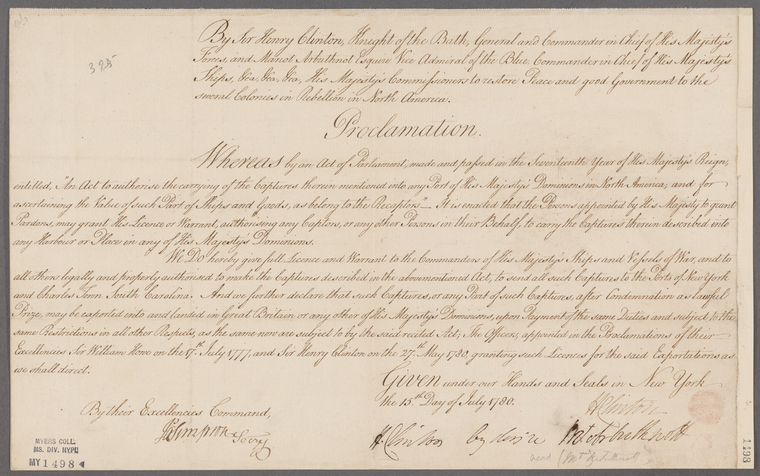 395
By Sir Henry Clinton, Knight of the Bath, General and Commander in Chief of His Majesty's
Forces, and Mariot Arbuthnot Esquire Vice Admiral of the Blue, Commander in Chief of His Majesty's
Ships, &ca. &ca. &ca. His Majesty's Commissioners to restore Peace and good Government to the
several Colonies in Rebellion in North America.
Proclamation.
Whereas by an Act of Parliament, made and passed in the Seventeenth Year of His Majesty's Reign,
entitled, "An Act to authorise the carrying of the Captures therein mentioned into any Port of His Majesty's Dominions in North America; and for
ascertaining the Value of such Part of Ships and Goods, as belong to the Recaptors"— It is enacted that the Persons appointed by His Majesty to grant
Pardons, may grant His Licence or Warrant, authorising any Captors, or any other Persons in their Behalf, to carry the Captures therein described into
any Harbour or Place in any of His Majesty's Dominions.
We Do hereby give full Licence and Warrant to the Commanders of His Majesty's Ships and Vessels of War, and to
all others legally and properly authorised to make the Captures described in the abovementioned Act, to send all such Captures to the Ports of New York
and Charles Town South Carolina. And we further declare that such Captures, or any Part of such Captures, after Condemnation as lawful
Prize, may be exported into and landed in Great Britain or any other of His Majesty's Dominions, upon Payment of the same Duties and subject to the
same Restrictions in all other Respects, as the same now are subject to by the said recited Act; The Officers, appointed in the Proclamations of their
Excellencies Sir William Howe on the 17th July 1777, and Sir Henry Clinton on the 27th May 1780, granting such Licences for the said Exportations as
we shall direct.
Given under our Hands and Seals in New York
the 15th Day of July 1780.
H Clinton
By their Excellencies Command,
Js Simpson Secry
H Clinton by desire Mt Arbuthnott
MYERS COLL.
MS. DIV. NYPL
MY 1498
1193